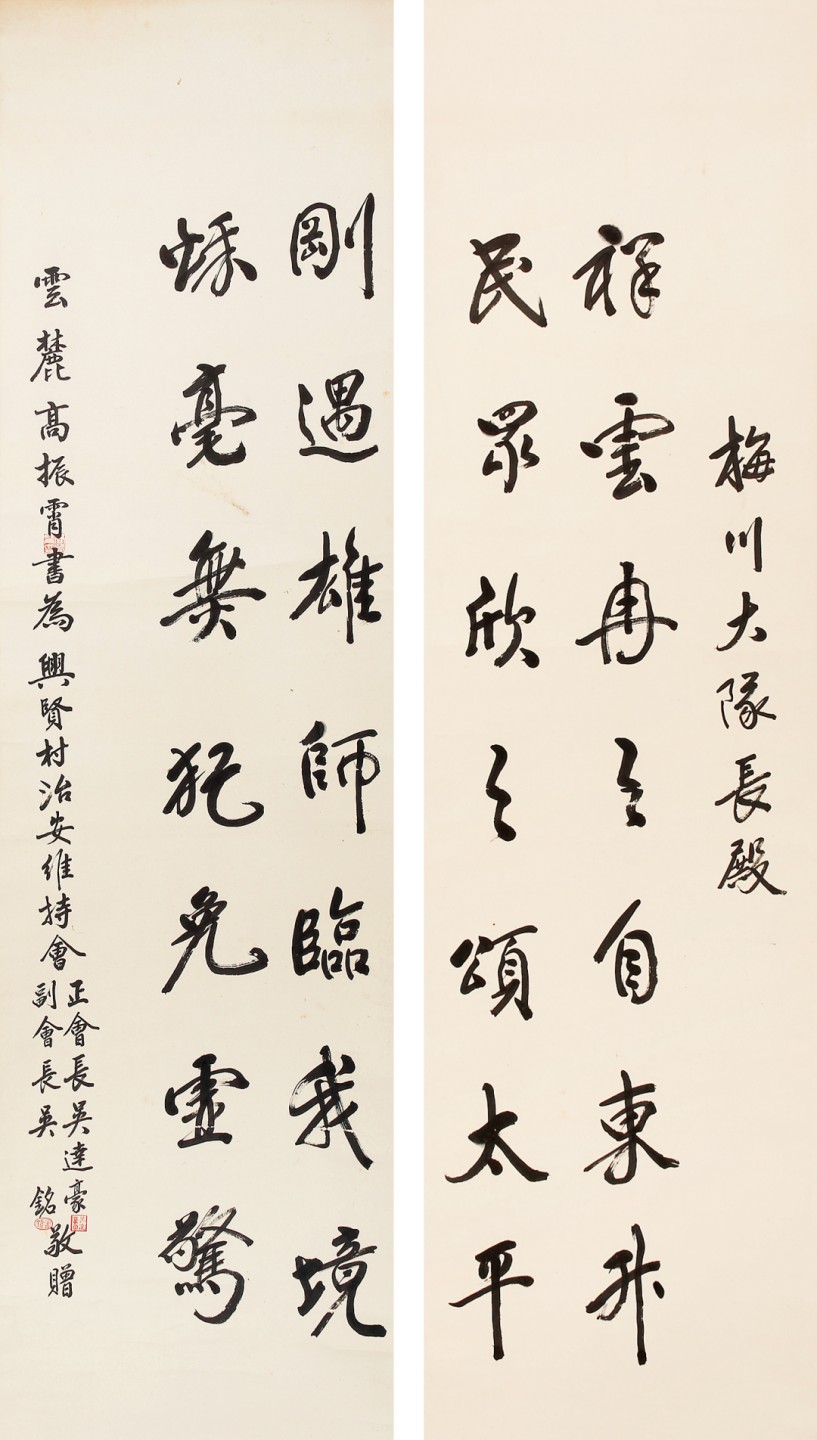 梅川大隊長殿
祥雲冉々自東升
民眾欣々頌太平
剛遇雄師臨我境
秌毫無犯免虛驚
雲麓高振霄書為興賢村治安維持會
正會長吳達豪
副會長吳銘
敬贈